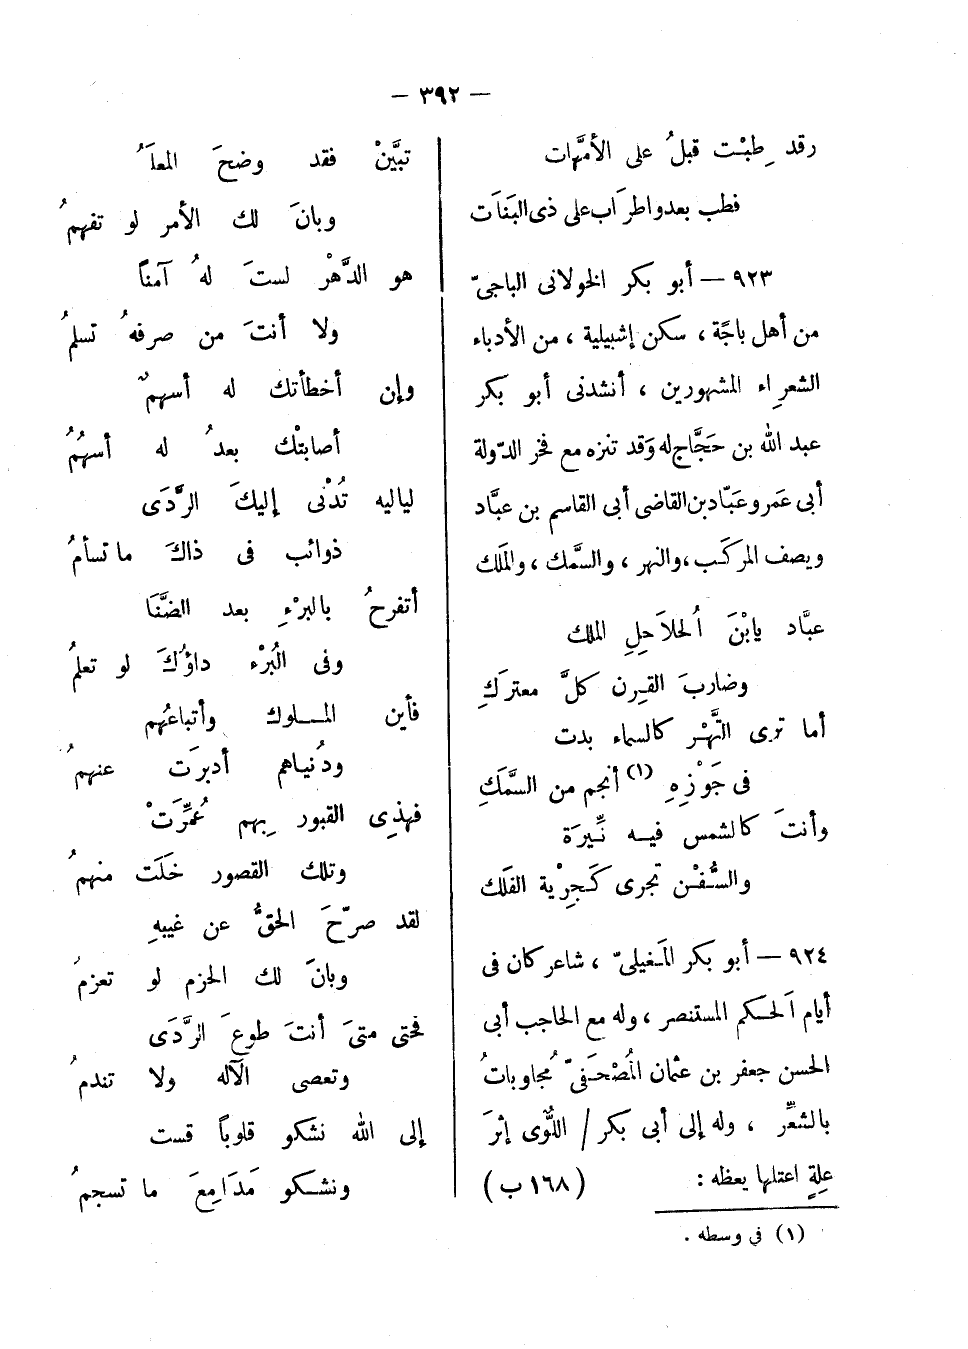 — ٣٩٢ —
رقد طِبْت قبلُ على الأمَّهات
فطب بعد واطرَاب على ذى البَنَات
٩٢٣ — أبو بكر الخولانى الباجىّ
من أهل باجَة ، سكن إشبيلية ، من الأدباء
الشعرِاء المشهورين ، أنشدنى أبو بكر
عبد الله بن حَجَّاج له وَقد تنزه مع فخر الدّولة
أبى عَمرو عَبّاد بن القاضى أبى القاسم بن عبَّاد
ويصف المركَب ، والنهر ، والسَّمك ، والمَلك
عبَّاد يابْنَ اُلحلاَحِلِ الملك
وضاربَ القِرن كلَّ معتركِ
أما ترى النَّهْر كالسماء بدت
فى جَوْزِهِ (١) أنجم من السَّمَكِ
وأنتَ كالشمس فيه نَيِّرَة
والسُّفْن تجرى كَجِرْية الفلك
٩٢٤ — أبو بكر المَغيلىّ ، شاعر كان فى
أيام اَلحكم المستنصر ، وله مع الحاجب أبى
الحسن جعفر بن عثمان المُصْحَفىّ مُجاوباتُ
بالشعِّر ، وله إلى أبى بكر / اللُّوٌى إثرَ
عِلةٍ اعتلها يعظه : (١٦٨ ب)
(١) فى وسطه .
تبيَّنْ فقد وضحَ المعلَمُ
وبانَ لك الأمر لو تفهمُ
هو الدَّهْر لستَ لهُ آمناً
ولا أنتَ من صرفهُ تسلمُ
وإن أخطأتك له أسهمٌ
أصابتْك بعدُ له أسهُمُ
لياليه تُدْنى إليكَ الرَّدَى
ذوائب فى ذاكَ ما تسأمُ
أتفرحُ بالبرْءِ بعد الضَّنَا
وفى البُرْء داؤُكَ لو تعلمُ
فأين الملوك وأتباعُهم
ودُنياهم أدبرَت عنهمُ
فهذِى القبور بِهم عُمِّرَتْ
وتلك القصور خَلَت منهمُ
لقد صرّحَ الحقُّ عن غيبهِ
وبانَ لك الحزم لو تعزمُ
فحتى متىَ أنتَ طوعَ الرَّدَى
وتعصى الآله ولا تندمُ
إلى الله نشكو قلوباً قست
ونشكو مَدَامِعَ ما تسجمُ